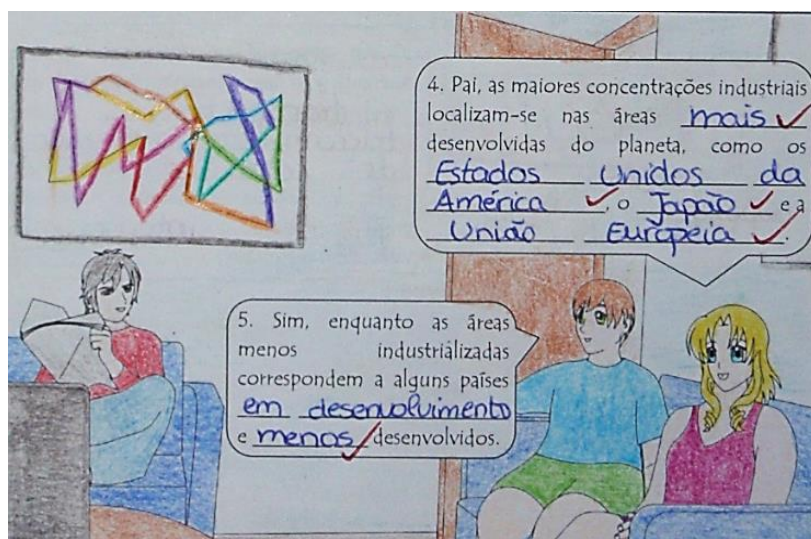 4. Pai, as maiores concentrações industriais
localizam-se nas áreas mais
desenvolvidas do planeta, como os
Estados Unidos da
América, o Japão e a
União Europeia.
5. Sim, enquanto as áreas
menos industrializadas
correspondem a alguns países
em desenvolvimento
e menos desenvolvidos.